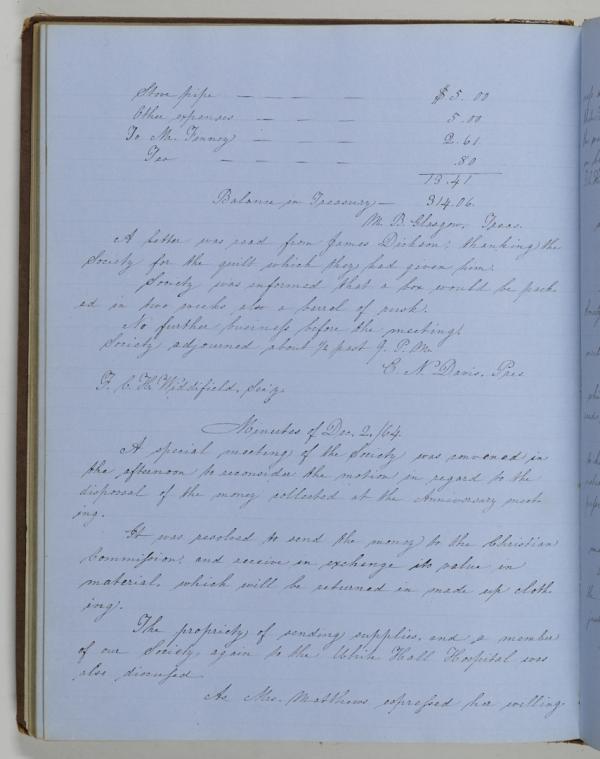 Stove pipe — — — $5.00
Other expenses — — — 5.00
To Mr. Tenney — — — 2.61
Tea — — — .80
13.41
Balance in Treasury — 314.06.
M. B. Glasgow, Treas.
A letter was read from James Dickson; thanking the
Society for the quilt which they had given him.
Society was informed that a box would be pack
ed in two weeks also a barrel of rusk.
No further business before the meeting.
Society adjourned about ½ past 9. P.M.
C. N. Davis. Pres
F. C. H. Widdifield, Sec'y.
Minutes of Dec. 2,/64.
A special meeting of the Society was convened in
the afternoon to reconsider the motion in regard to the
disposal of the money collected at the Anniversary meet
ing.
It was resolved to send the money to the Christian
Commission; and receive in exchange its value in
material, which will be returned in made up cloth
ing.
The propriety of sending supplies, and a member
of our Society, again to the White Hall Hospital was
also discussed
As Mrs. Matthews expressed her willing